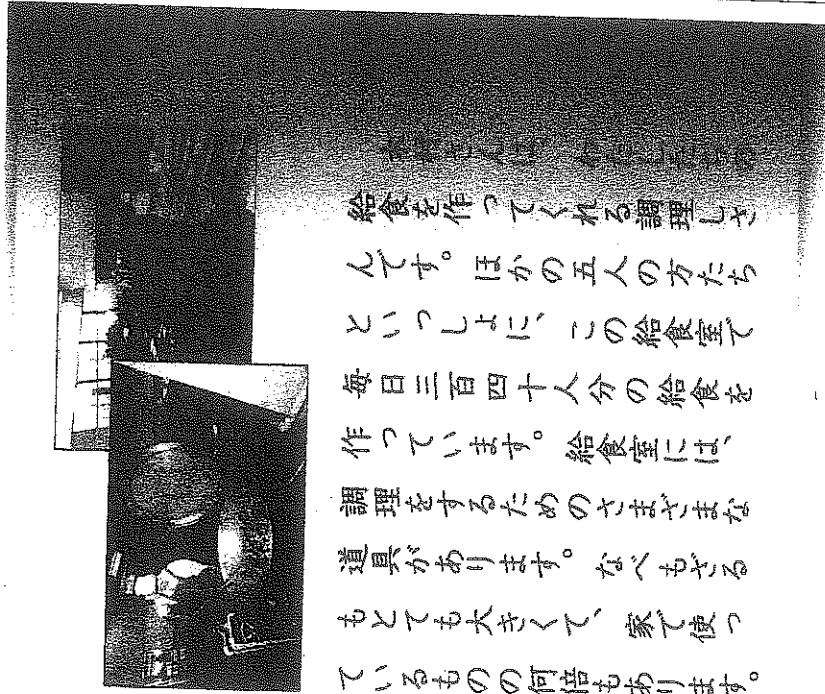 さんは、わたしたちの
給食を作ってくれる調理しさ
んです。ほかの五人の方たち
といっしょに、この給食室で
毎日三百四十人分の給食を
作っています。給食室には、
調理をするためのさまざまな
道具があります。なべもざる
もとても大きくて、家で使っ
ているものの何倍もあります。